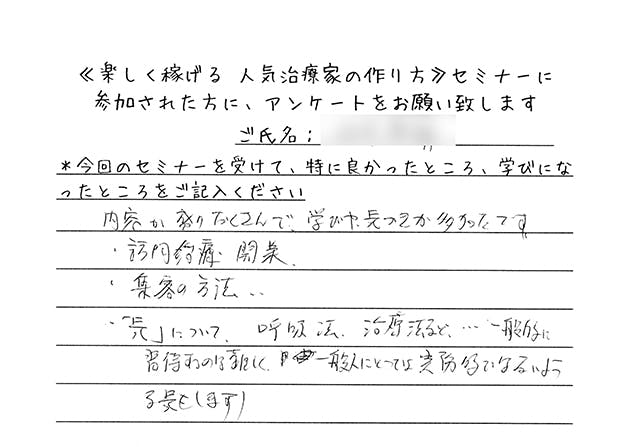 ≪楽しく稼げる 人気治療家の作り方≫セミナーに
参加された方に、アンケートをお願い致します
ご氏名：
＊今回のセミナーを受けて、特に良かったところ、学びにな
ったところをご記入ください
内容が盛りだくさんで、学びや気づきが多かったです
・訪問治療 開業、
・集客の方法‥
・「気」について、呼吸法、治療法など、…一般的に
一般人にとっては